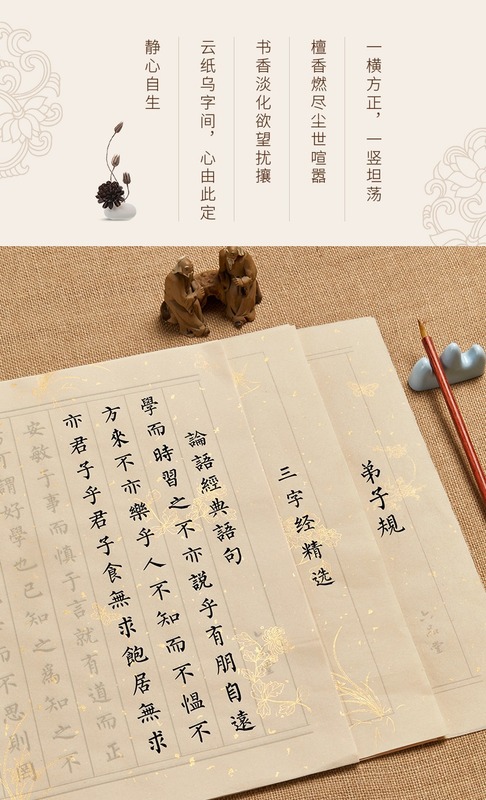 一横方正，一竖坦荡
檀香燃尽尘世喧嚣
书香淡化欲望扰攘
云纸乌字间，心由此定
静心自生
弟子規
三字经精选
論語經典語句
學而時習之不亦説乎有朋自遠
方來不亦樂乎人不知而不愠不
亦君子乎君子食無求飽居無求
安敏于事而慎于言就有道而正
可謂好學也已知之爲知之不
而不思則罔